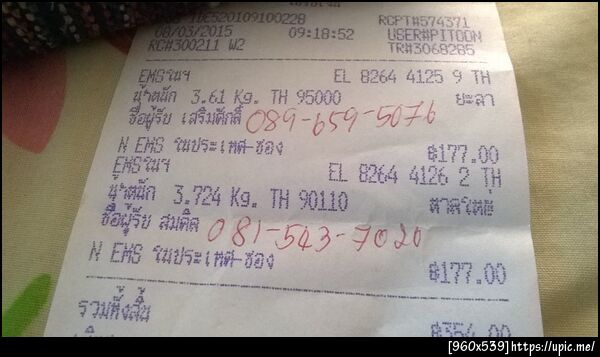 TDC520109100228 RCPT#574371
08/03/2015 09:18:52 USER#PITOON
RC#300211 W2 TR#3068285
EMSในฯ EL 8264 4125 9 TH
น้ำหนัก 3.61 Kg. TH 95000 ยะลา
ชื่อผู้รับ เสริมศักดิ์ 089-659-5076
N EMS ในประเทศ-ซอง ฿177.00
EMSในฯ EL 8264 4126 2 TH
น้ำหนัก 3.724 Kg. TH 90110 หาดใหญ่
ชื่อผู้รับ สมคิด 081-543-7020
N EMS ในประเทศ-ซอง ฿177.00
รวมทั้งสิ้น ฿354.00
[960x539]https://upic.me/